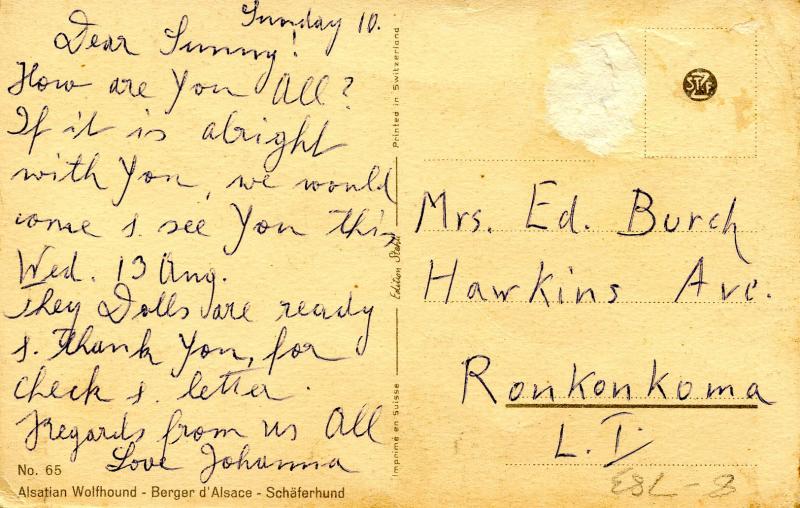 Sunday 10.
Dear Sunny!
How are You All?
If it is alright
with You, we would
come & see You this
Wed. 13 Aug.
They Dolls are ready
&. Thank You, for
check &. letter.
Regards from us All
Love Johanna
No. 65
Alsatian Wolfhound - Berger d'Alsace - Schäferhund
Printed in Switzerland
Edition Stehli
Imprimé en Suisse
STZF
Mrs. Ed. Burch
Hawkins Ave.
Ronkonkoma
L. I.